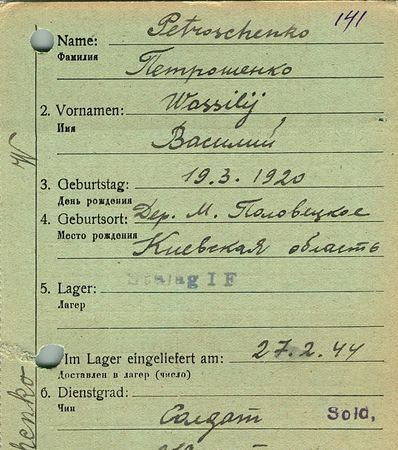 141
Name: Petroschenko
Фамилия
Петрошенко
2. Vornamen: Wassilij
Имя
Василий
3. Geburtstag: 19.3.1920
День рождения
4. Geburtsort: Дер. М. Половецкое
Место рождения
Киевская область
Stalag I F
5. Lager:
Лагерь
Im Lager eingeliefert am: 27.2.44
Доставлен в лагерь (число)
6. Dienstgrad:
Чин
Солдат Sold,
henko